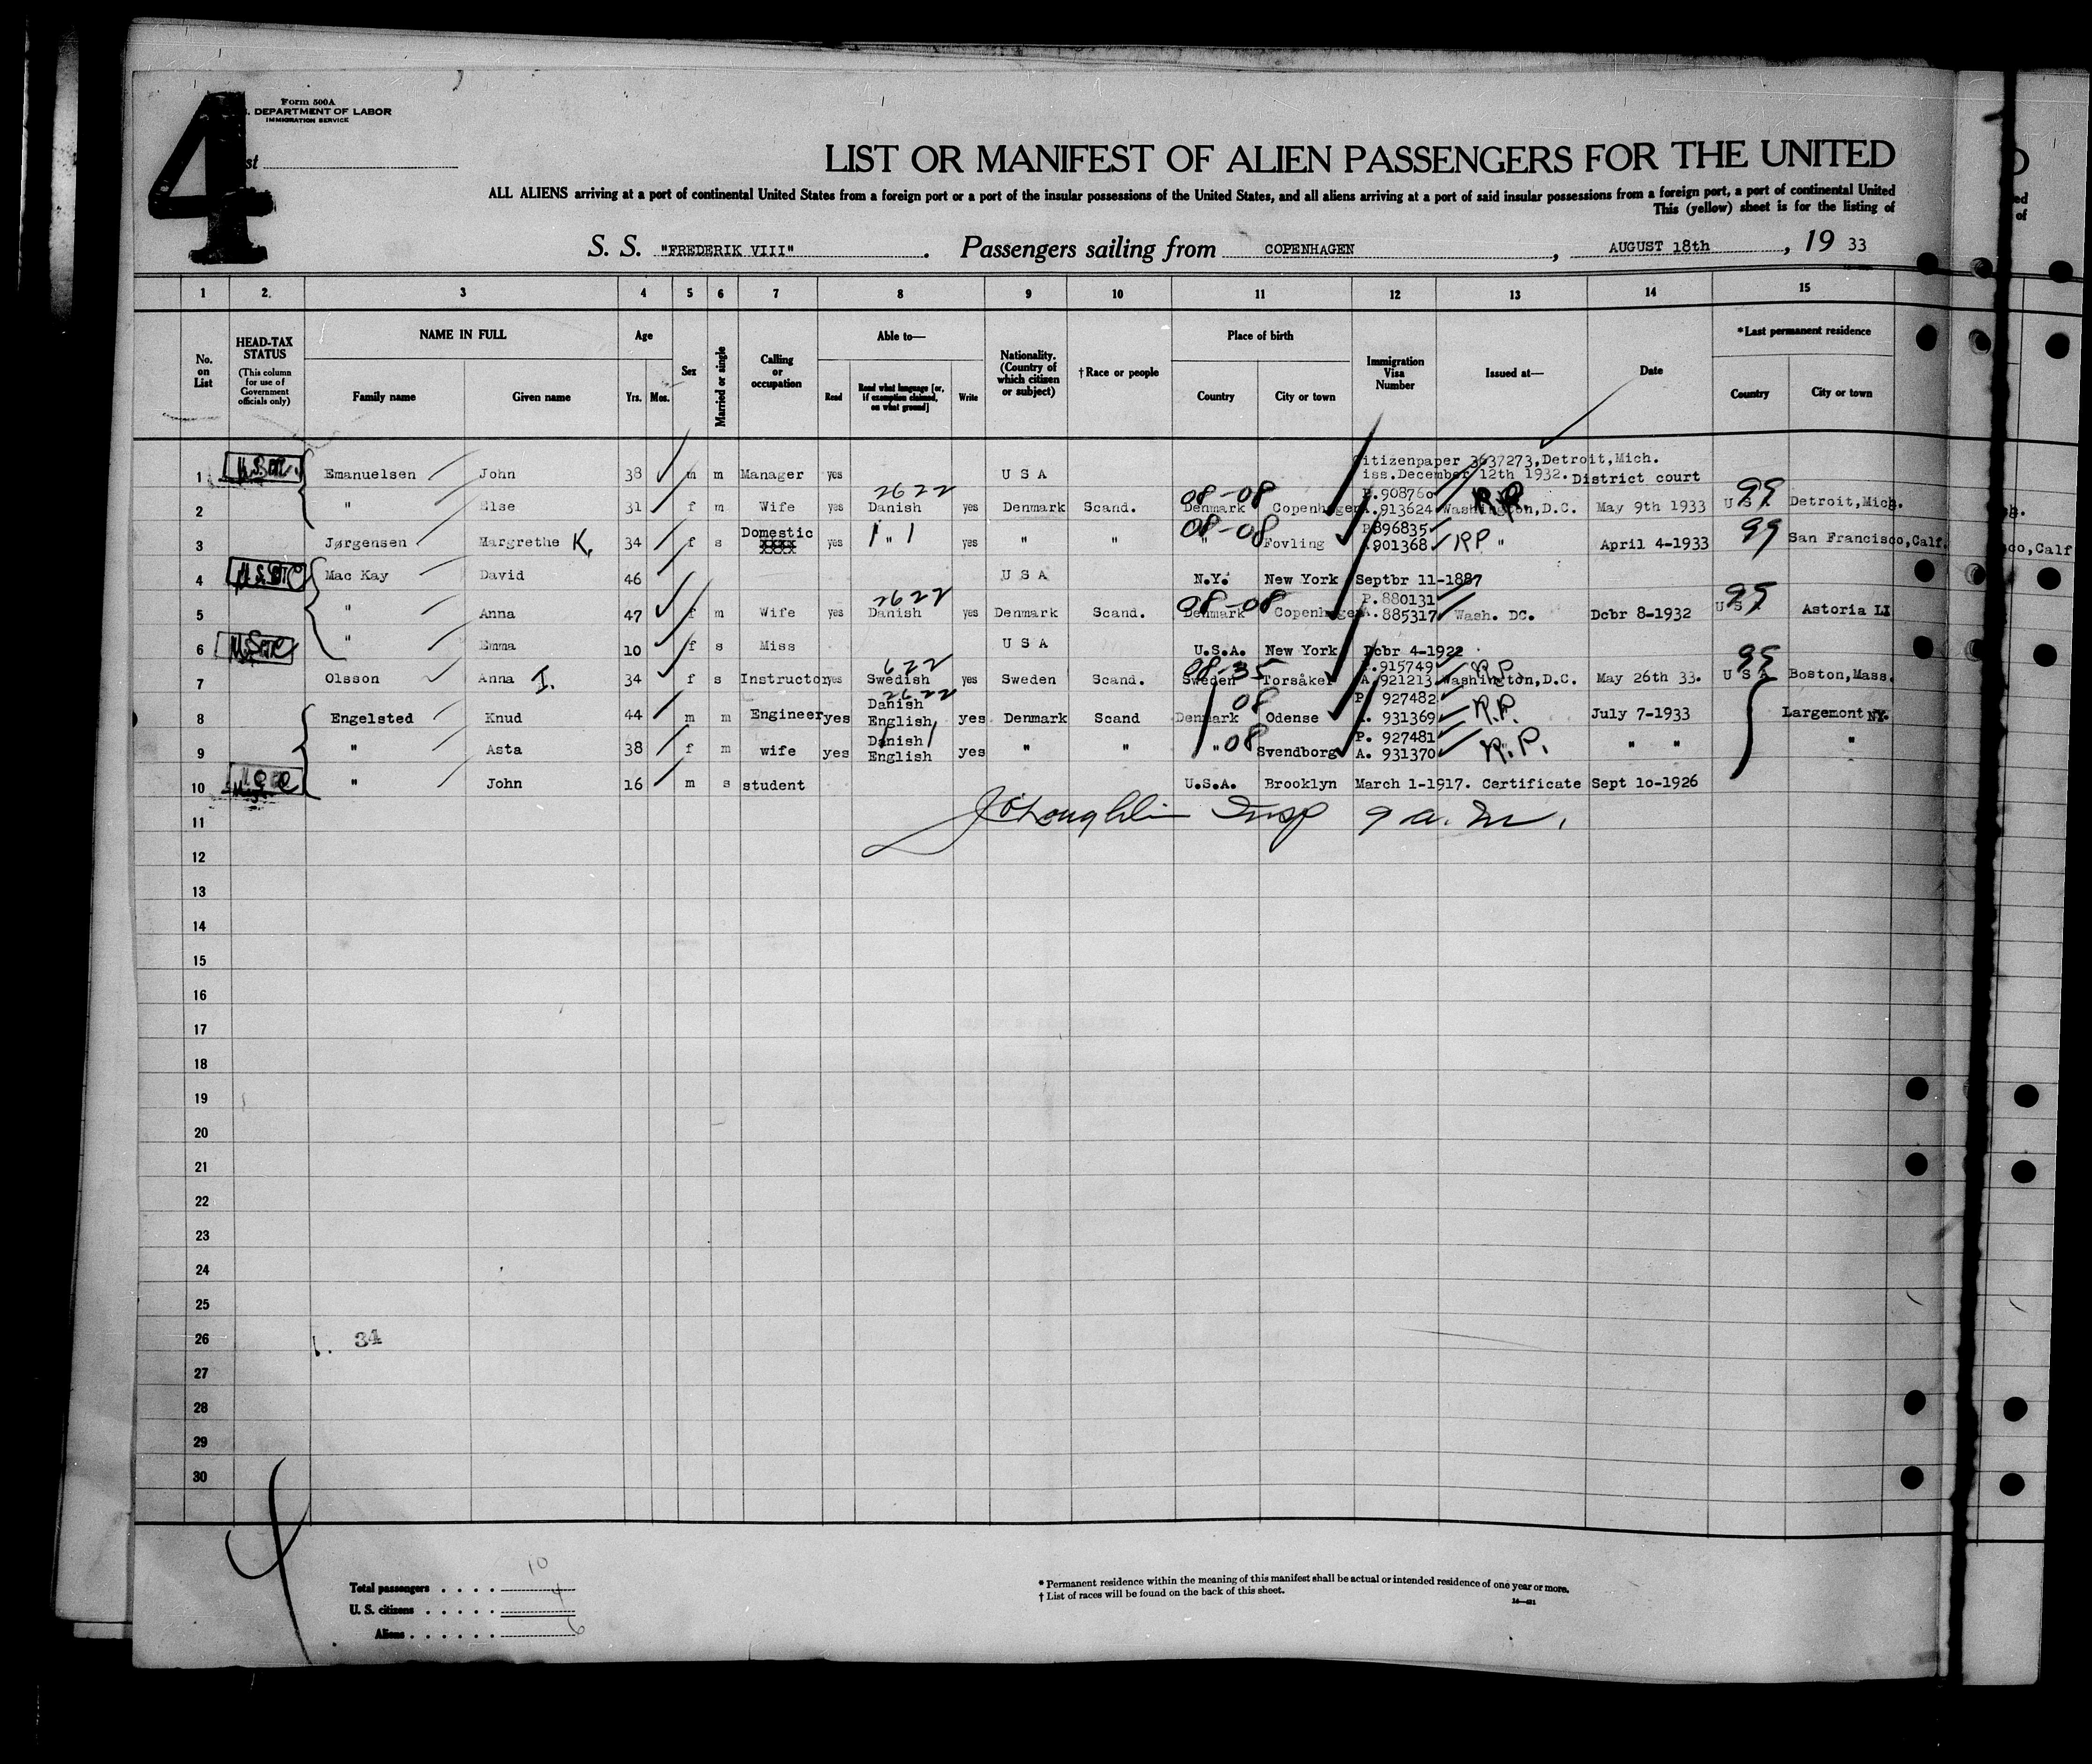 4
Form 500A
DEPARTMENT OF LABOR
IMMIGRATION SERVICE
LIST OR MANIFEST OF ALIEN PASSENGERS FOR THE UNITED
ALL ALIENS arriving at a port of continental United States from a foreign port or a port of the insular possessions of the United States, and all aliens arriving at a port of said insular possessions from a foreign port, a port of continental United
This (yellow) sheet is for the listing of
S. S. "FREDERIK VIII" . Passengers sailing from COPENHAGEN , AUGUST 18th , 19 33
1 2 3 4 5 6 7 8 9 10 11 12 13 14 15
No. on List
HEAD-TAX STATUS (This column for use of Government officials only)
NAME IN FULL Family name Given name
Age Yrs. Mos.
Sex
Married or single
Calling or occupation
Able to— Read Read what language [or, if exemption claimed, on what ground] Write
Nationality. (Country of which citizen or subject)
†Race or people
Place of birth Country City or town
Immigration Visa Number
Issued at—
Date
*Last permanent residence Country City or town
Citizenpaper 3637273,Detroit,Mich.
1 Emanuelsen John 38 m m Manager yes U S A iss.December 12th 1932. District court
2622 08-08 P.908760 R.P. 99
2 " Else 31 f m Wife yes Danish yes Denmark Scand. Denmark Copenhagen A.913624 Washington,D.C. May 9th 1933 U S A Detroit,Mich.
Domestic 08-08 P896835
3 Jørgensen Margrethe K. 34 f s yes " yes " " " Fovling 901368 RP " April 4-1933 99 San Francisco,Calf.
4 Mac Kay David 46 U S A N.Y. New York Septbr 11-1887
2622 08-08 P.880131 99
5 " Anna 47 f m Wife yes Danish yes Denmark Scand. Denmark Copenhagen A.885317 Wash. DC. Dcbr 8-1932 U S A Astoria LI
6 " Emma 10 f s Miss U S A U.S.A. New York Dcbr 4-1922
622 08-35 P.915749 R.P. 99
7 Olsson Anna I. 34 f s Instructor yes Swedish yes Sweden Scand. Sweden Torsåker A.921213 Washington,D.C. May 26th 33. U S A Boston,Mass.
2622 Danish 08 P. 927482
8 Engelsted Knud 44 m m Engineer yes English yes Denmark Scand Denmark Odense A. 931369 R.P. July 7-1933 Largemont NY.
Danish P. 927481
9 " Asta 38 f m wife yes English yes " " " 08 Svendborg A. 931370 R.P. " " "
10 " John 16 m s student U.S.A. Brooklyn March 1-1917. Certificate Sept 10-1926
11 J O'Loughlin Insp 9 a.m.
12
13
14
15
16
17
18
19
20
21
22
23
24
25
26 34
27
28
29
30
Total passengers . . . . 10
U. S. citizens . . . . . 4
Aliens . . . . . . 6
* Permanent residence within the meaning of this manifest shall be actual or intended residence of one year or more.
† List of races will be found on the back of this sheet.